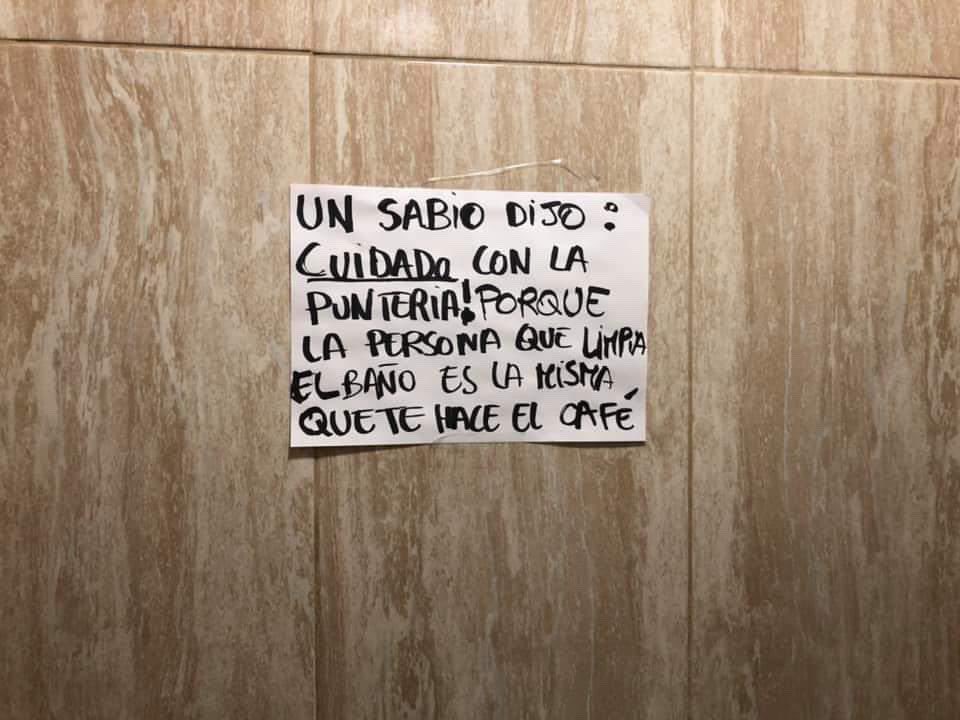 UN SABIO DIJO:
CUIDADO CON LA
PUNTERIA! PORQUE
LA PERSONA QUE LIMPIA
EL BAÑO ES LA MISMA
QUE TE HACE EL CAFÉ